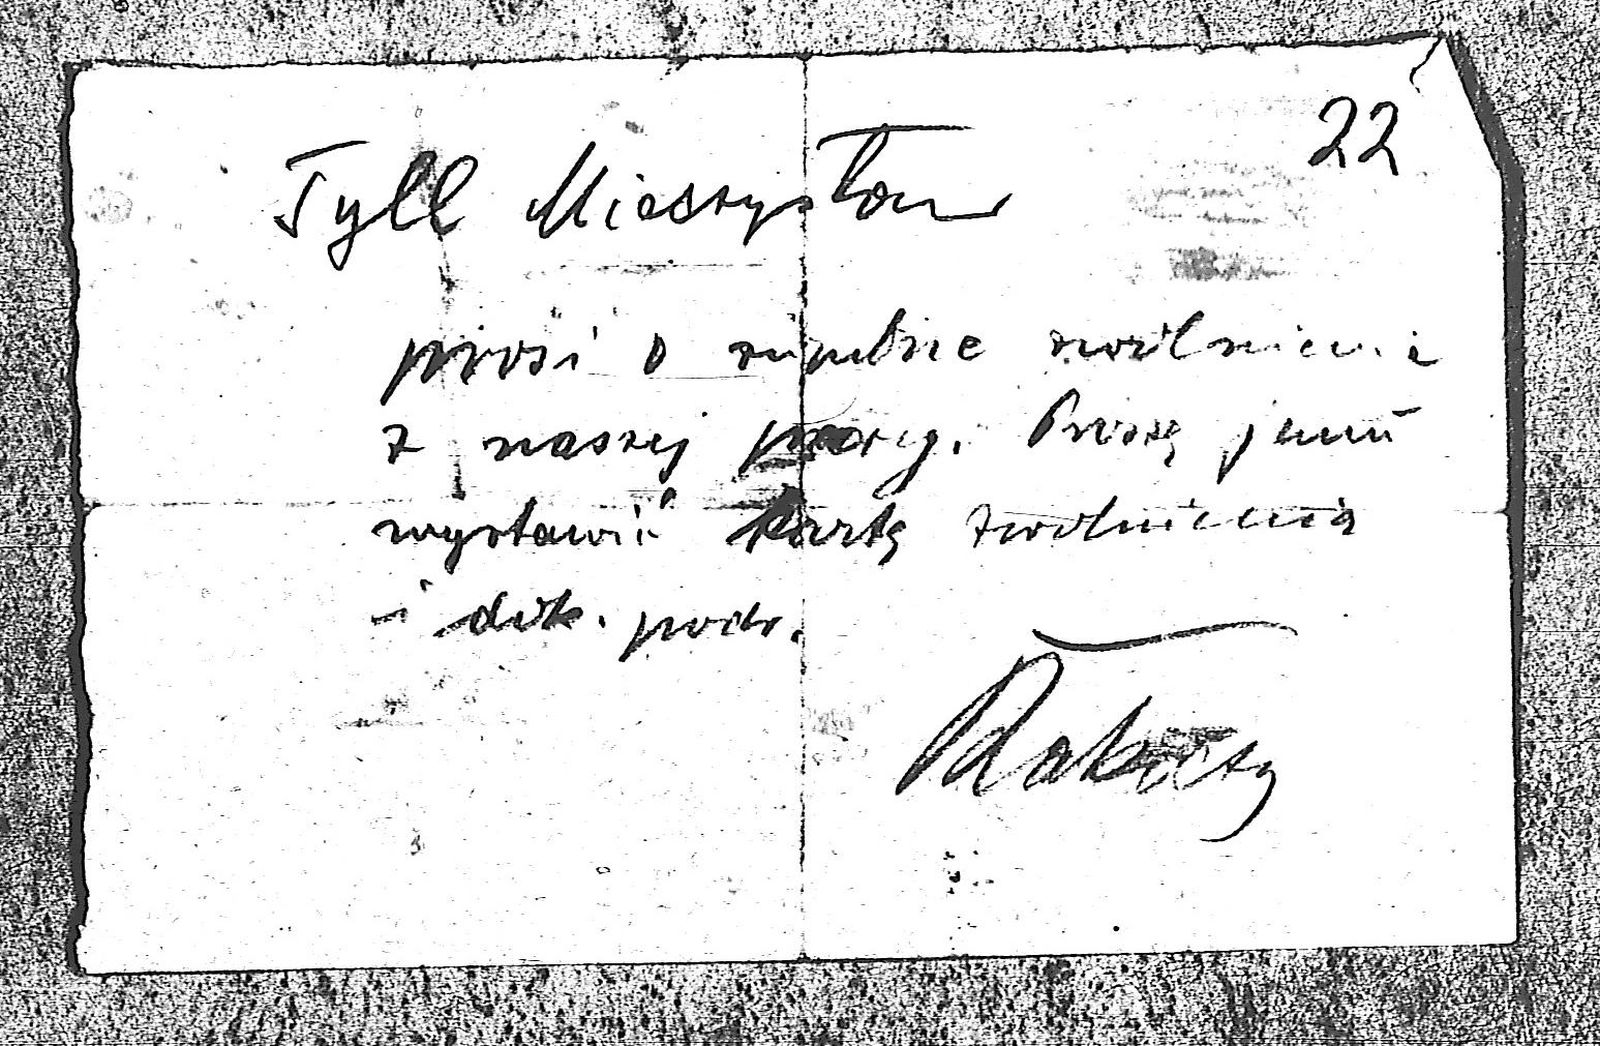 22
Tyll Mieczysław
prosi o zupełne zwolnienie
z naszej pracy. Proszę jemu
wystawić kartę zwolnienia
i dok. podr.
Rakoczy